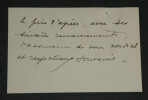 Le prie d'agréer, avec ses
sincères remerciements,
l'assurance de son cordial
et respectueux souvenir.